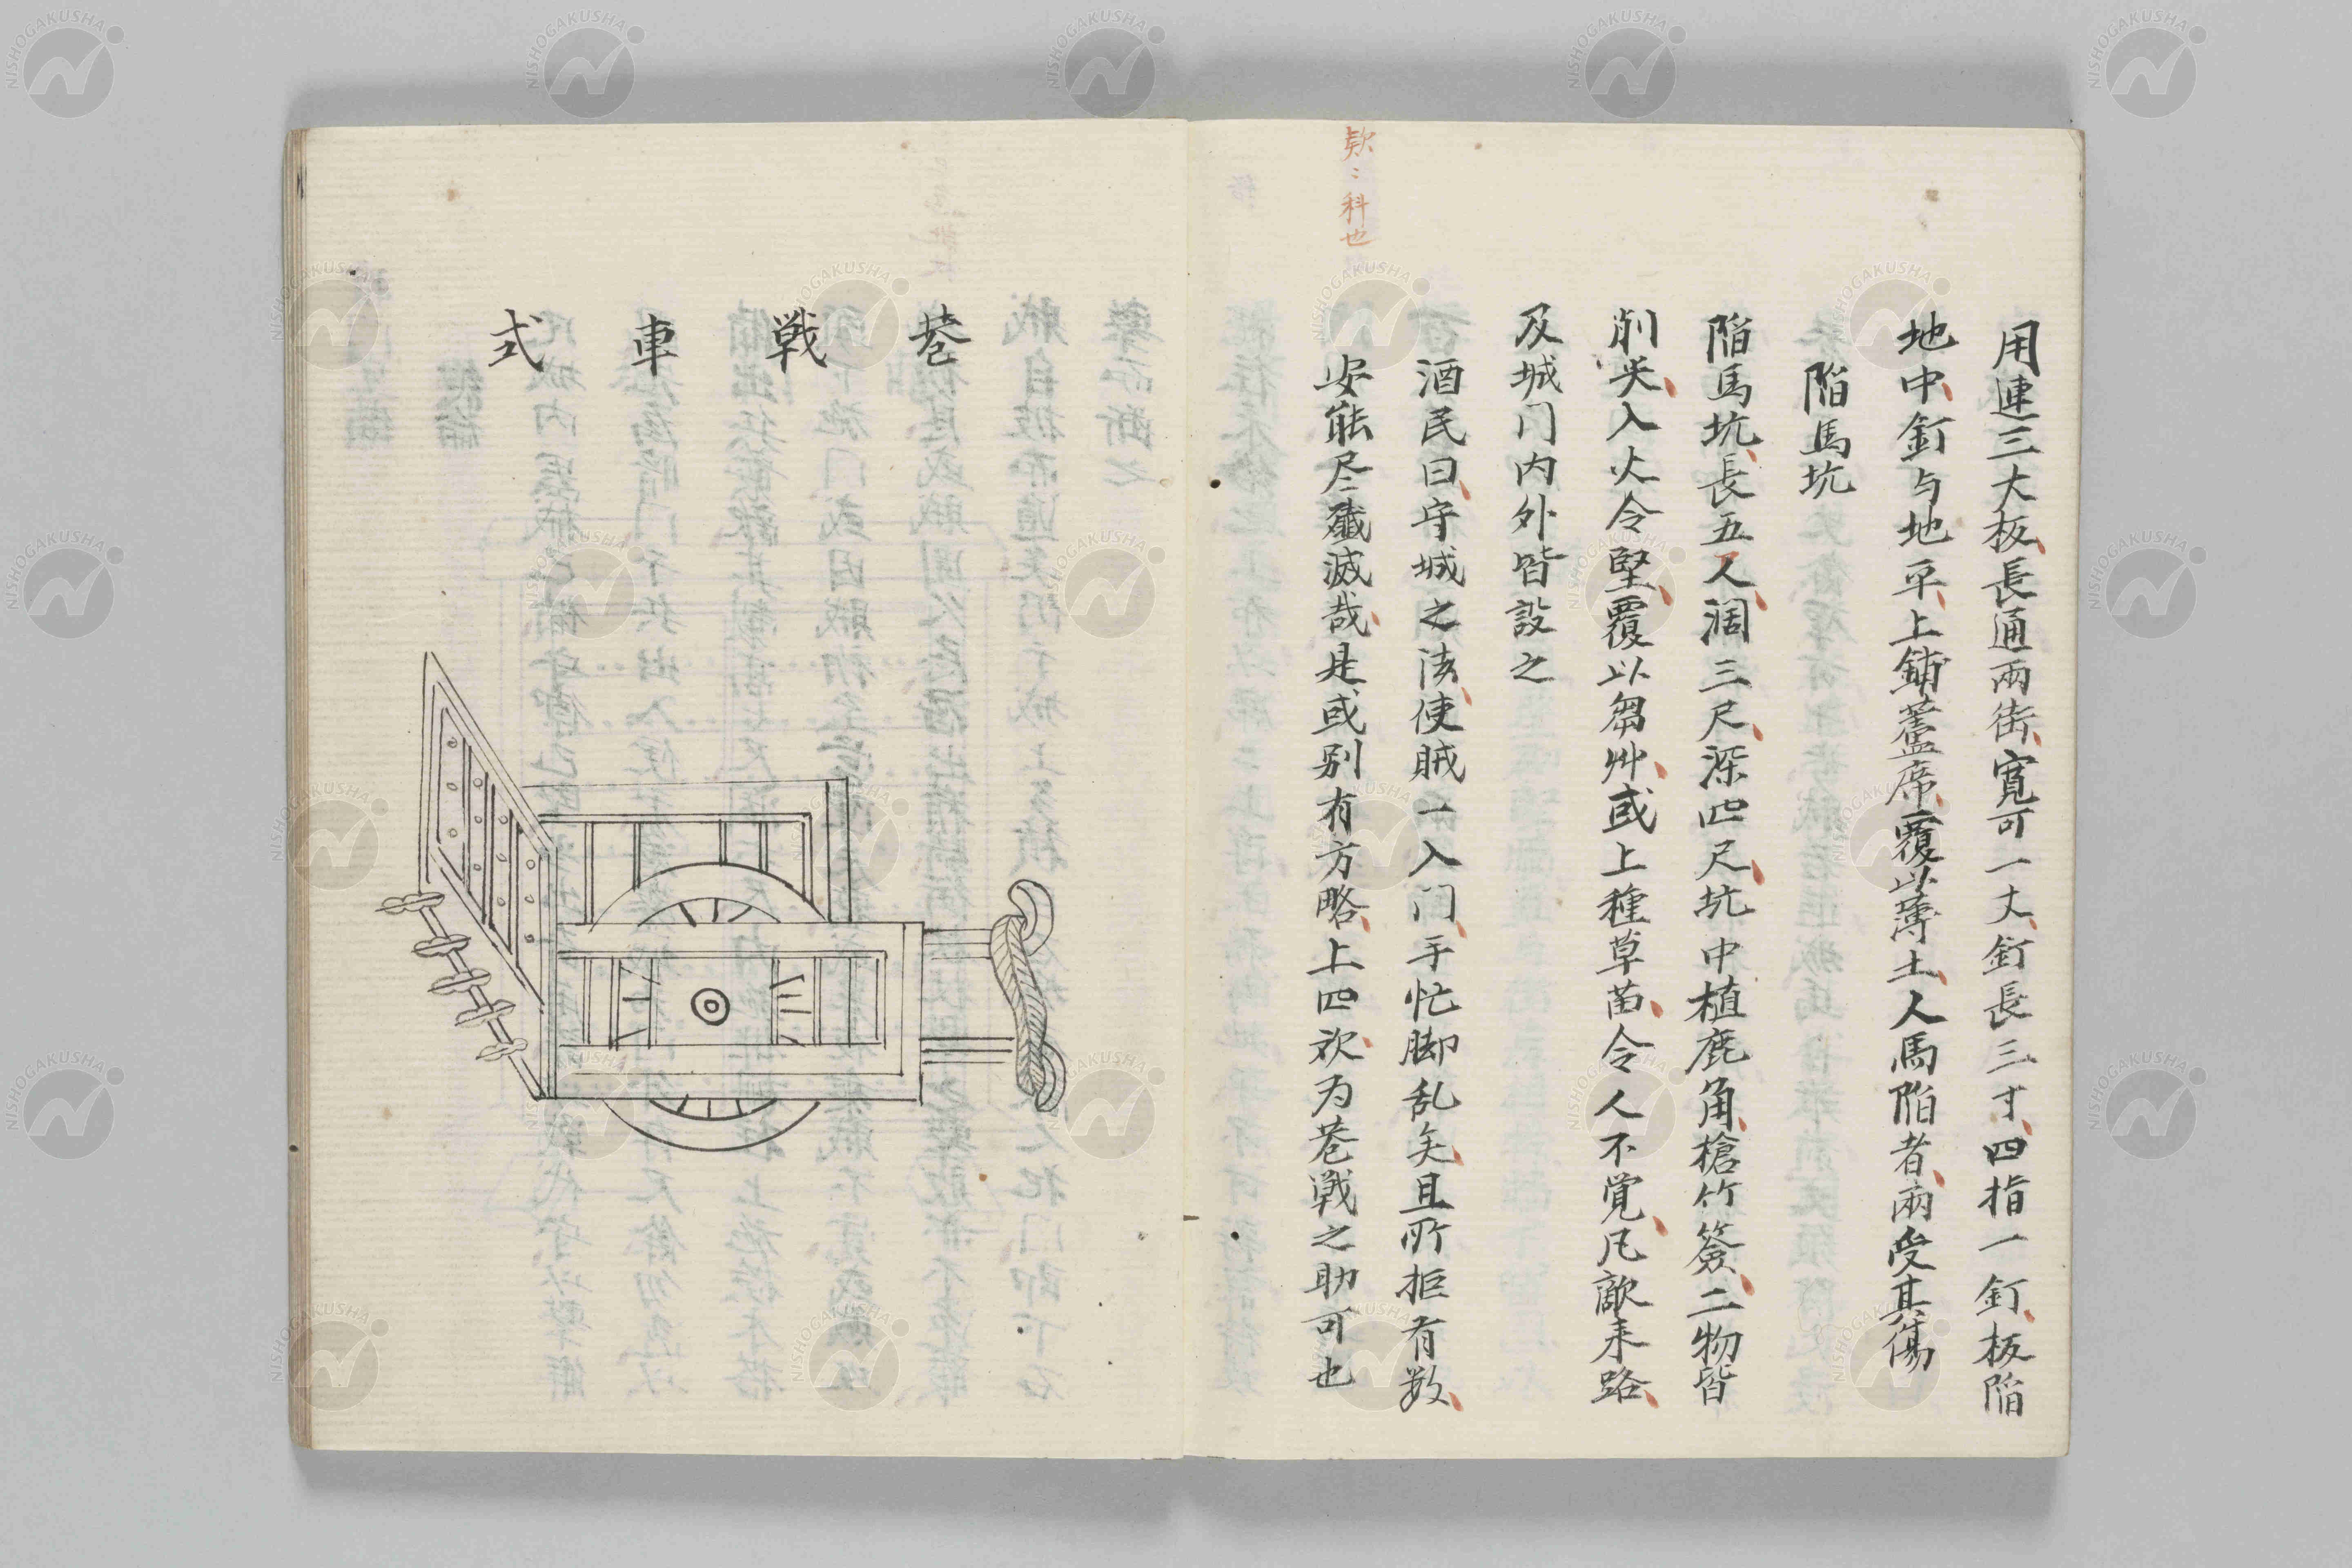 用連三大板長通兩街寬可一丈釘長三寸四指一釘板陷
地中釘与地平上鋪蓋席覆以薄土人馬陷者兩受其傷
陷馬坑
陷馬坑長五尺濶三尺深四尺坑中植鹿角槍竹簽二物皆
削尖入火令堅覆以芻艸或上種草苗令人不覚凡敵来路
及城门内外皆設之
酒民曰守城之法使賊一入门手忙脚乱矣且所拒有数
安能尽殲滅哉是或别有方略上四欵为巷戦之助可也
欵〻科也
巷戦車式
NISHOGAKUSHA